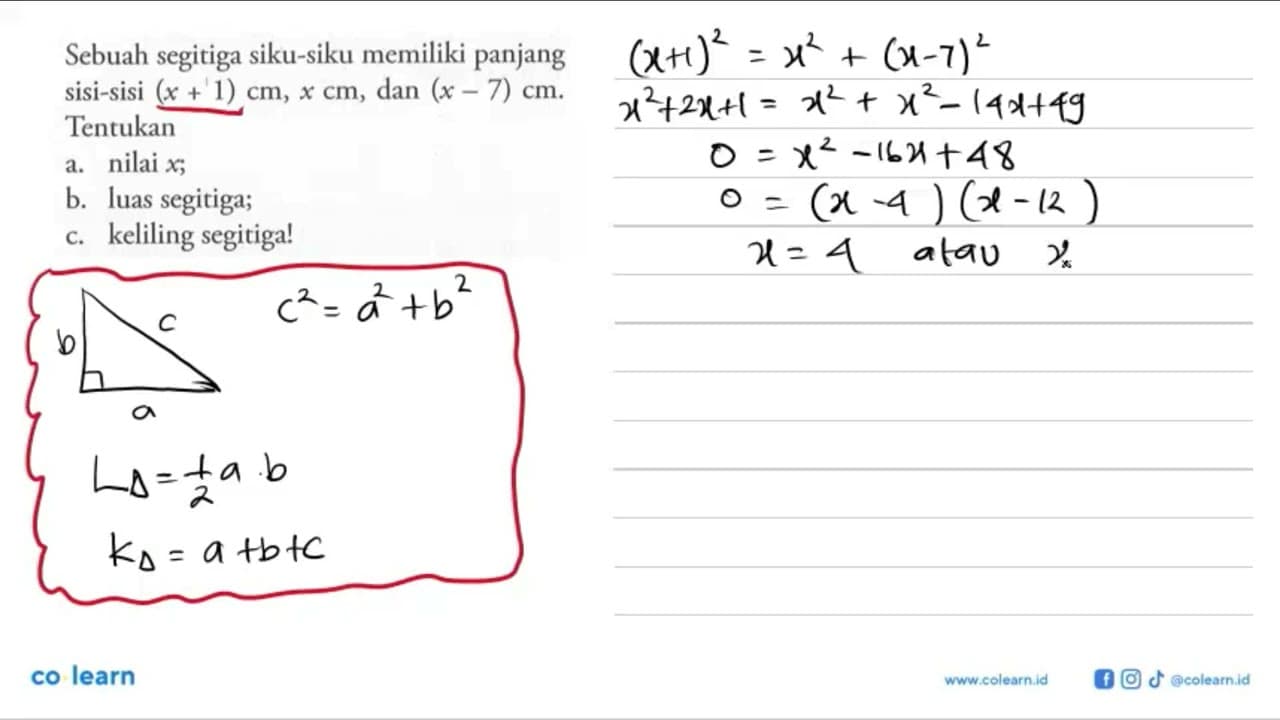 Sebuah segitiga siku-siku memiliki panjang
sisi-sisi (x + 1) cm, x cm, dan (x – 7) cm.
Tentukan
a. nilai x;
b. luas segitiga;
c. keliling segitiga!
b
c
a
c² = a² + b²
L△ = 1/2 a · b
K△ = a + b + c
(x+1)² = x² + (x-7)²
x²+2x+1 = x² + x² - 14x+49
0 = x² - 16x + 48
0 = (x - 4) (x - 12)
x = 4 atau x
co learn
www.colearn.id
@colearn.id